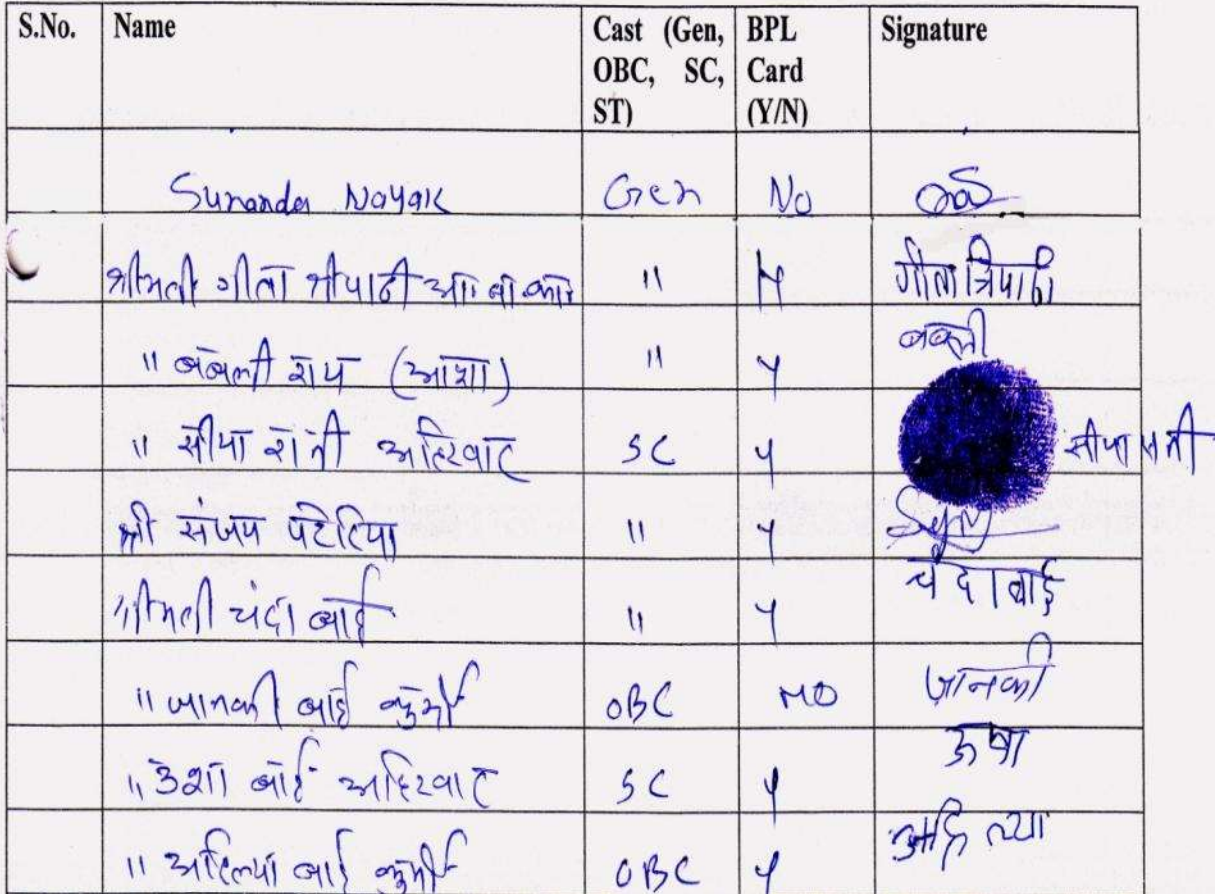 S.No. Name Cast (Gen, OBC, SC, ST) BPL Card (Y/N) Signature
Sunanda Nayak Gen No
श्रीमती गीता त्रीपाठी आं. बा. का. " N गीता त्रिपाठी
" बबली राय (आशा) " Y बबली
" सीया रानी अहिरवार SC Y सीया रानी
श्री संजय पटेरिया " Y
श्रीमती चंदा बाई " Y चंदा बाई
" जानकी बाई कुर्मी OBC NO जानकी
" उशा बाई अहिरवार SC Y ऊषा
" अहिल्या बाई कुर्मी OBC Y अहिल्या